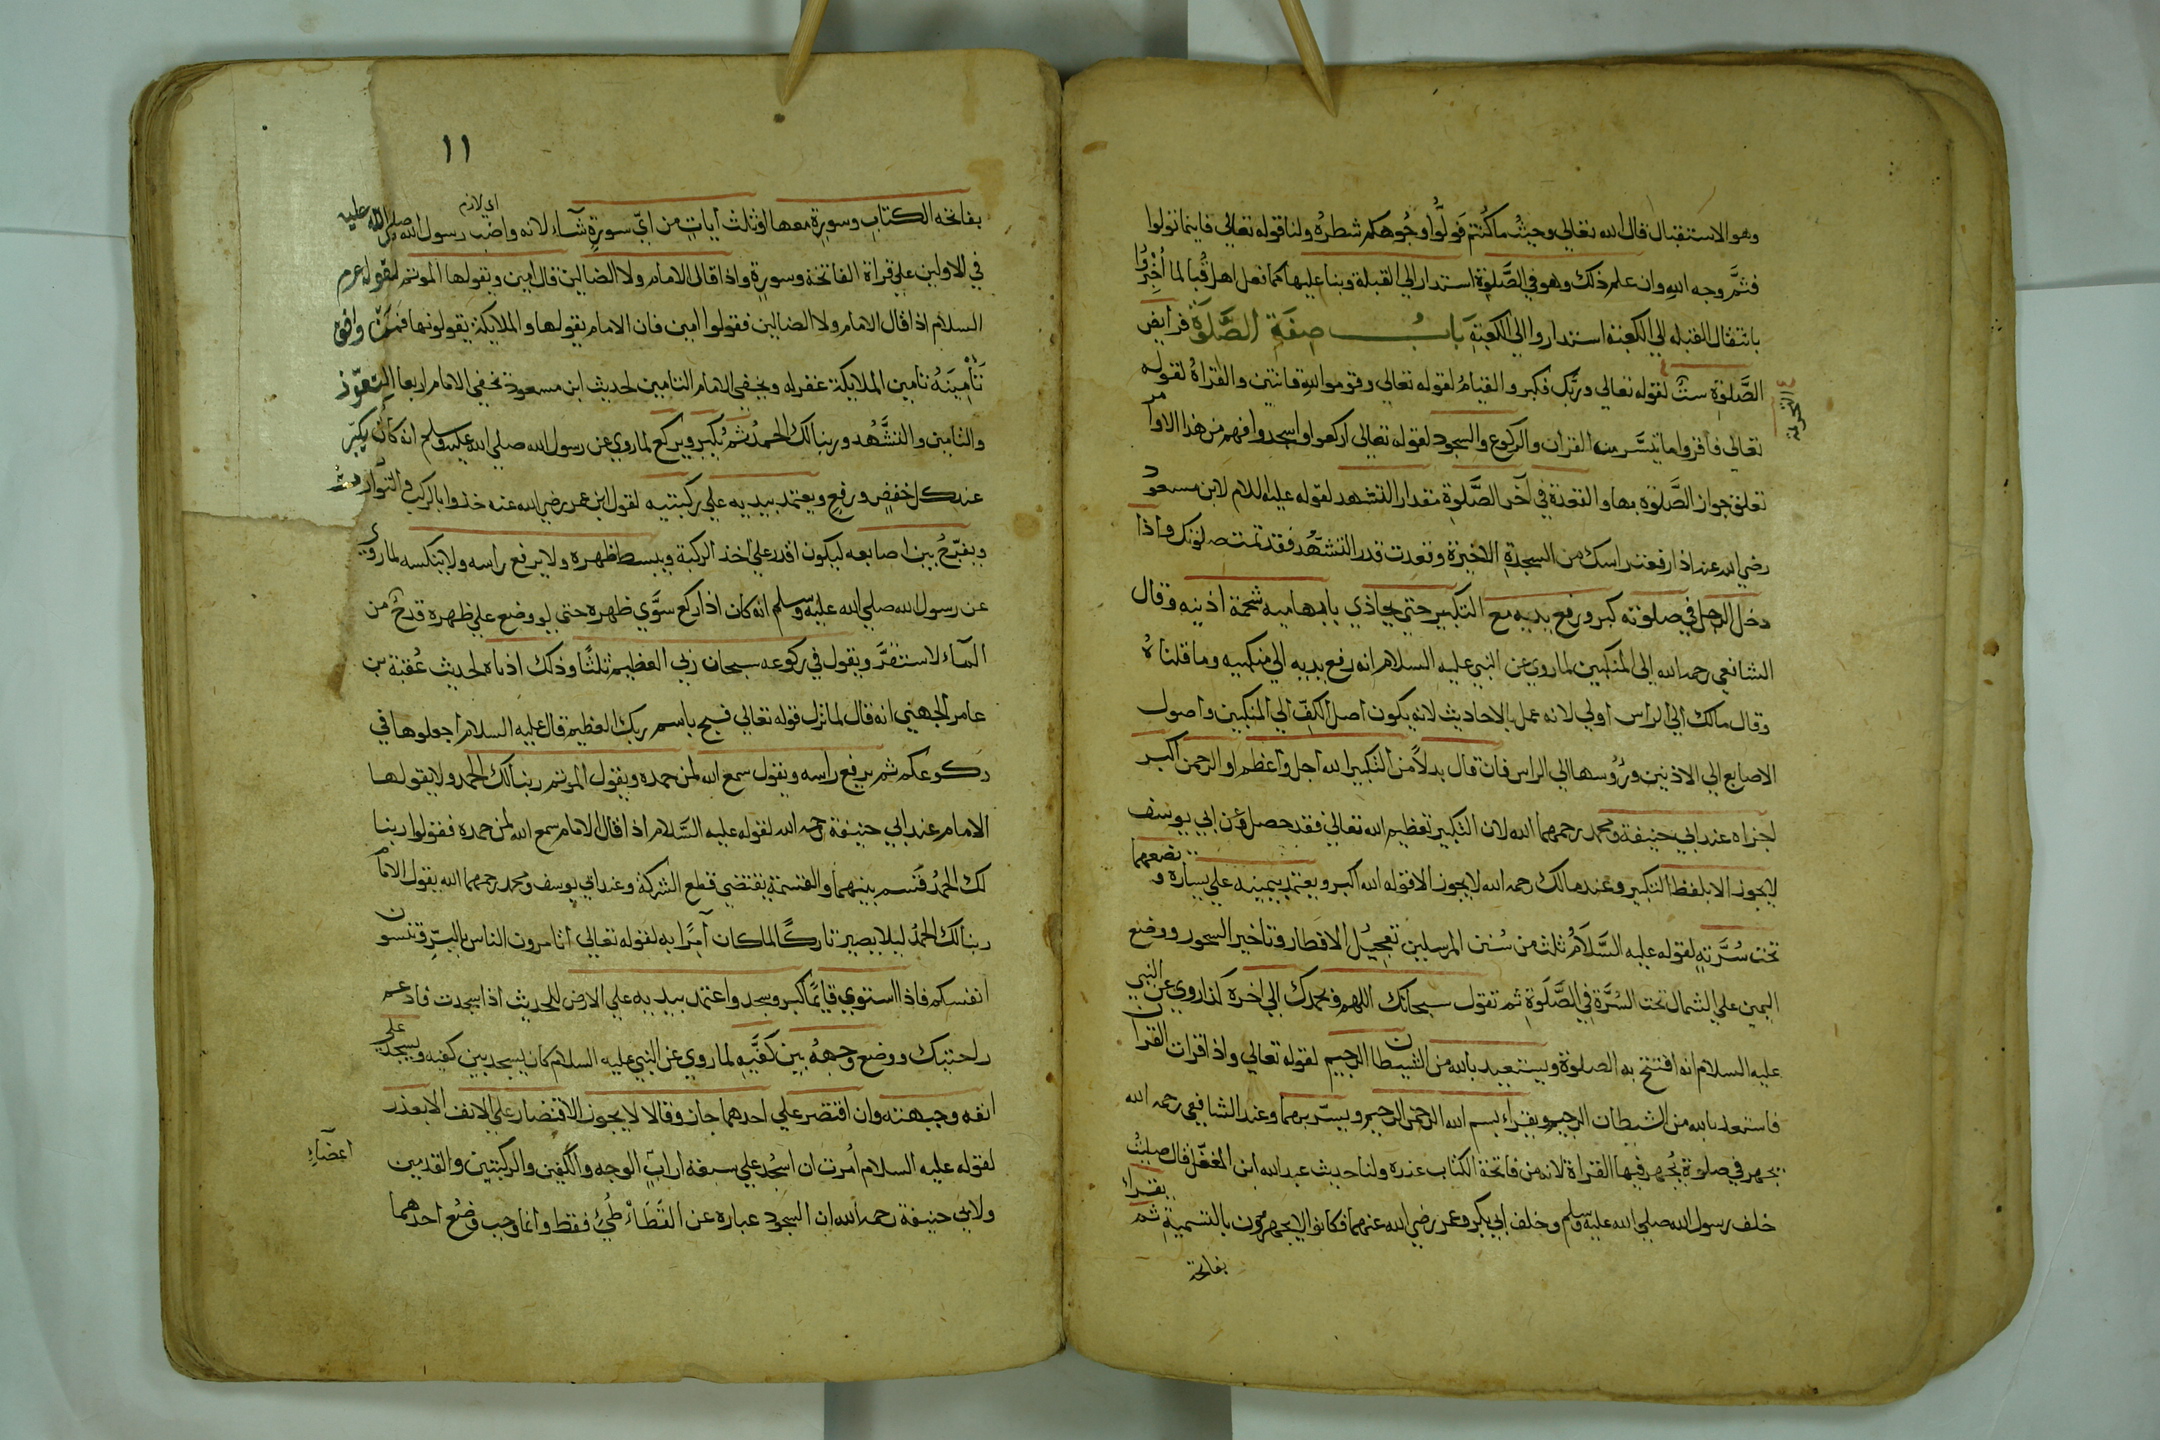 وهو الاستقبال قال الله تعالي وحيثُ ما كُنتم فَولُّوا وجُوهكم شطرهُ ولنا قوله تعالي فاينما تولوا
فثمَّ وجه اللهِ وان علم ذلك وهو في الصَّلوة استدار الي القبلة وبنا عليها كما فعل اهل قُبا لما أُخْبِرُوا
بانتقال القبله الي الكعبة استداروا الي الكعبةِ بابُ صِفَةِ الصَّلَوة فرايض
الصَّلوة ستٌ لقوله تعالي وربَّك فكبر والقيامُ لقوله تعالي وقوموا لله قانتين والقراةُ لقوله
التحريمة
تعالي فاقروا ما تيسَّر من القران والركوع والسجود لقوله تعالي اركعوا واسجدوا فهم من هذا الاوامر
تعلق جواز الصَّلوة بها والقعدة في آخر الصَّلوة مقدار التشهد لقوله عليه اللام لابن مسعود
رضي الله عنه اذا رفعت راسك من السجدة الاخيرة وقعدت قدر التشهُّد فقد تمت صلوتك واذا
دخل الرجل في صلوته كبر ورفع يديه مع التكبير حتي يحاذي بابهاميه شحمة اذنيه وقال
الشافعي رحمه الله الي المنكبين لما روي عن النبي عليه السلام انه رفع يديه الي منكبيه وما قلناهُ
وقال مالك الي الراس اولي لانه عمل بالاحاديث لانه يكون اصل الكفّ الي المنكبين واصول
الاصابع الي الاذنين ورُوسها الي الراس فان قال بدلاً من التكبير الله اجل واعظم او الرحمن اكبر
اجزاه عند ابي حنيفة ومحمد رحمهما الله لان التكبير تعظيم الله تعالي فقد حصل وعن ابي يوسف
لا يجوز الا بلفظ التكبير وعند مالك رحمه الله لا يجوز الا قوله الله اكبر ويعتمد بيمينه علي يساره ويضعهما
تحت سُرَّتهِ لقوله عليه السَّلَامُ ثلث من سُنن المرسلين تعجيلُ الافطار وتاخير السحور ووضع
اليمين علي الشمال تحت السُرَّة في الصَّلَوةِ ثم تقول سبحانك اللهم وبحمدك الي اخره لما روي عن النبي
عليه السلام انه افتتح به الصلوة ويستعيد بالله من الشيطان الرجيم لقوله تعالي واذا قرات القران
فاستعد بالله من الشيطان الرجيم ويقراء بسم الله الرحمن الرحيم ويسرّ بهما وعند الشافعي رحمه الله
يجهر في صلوة يُجهر فيها القراة لانه من فاتحة الكتاب عنده ولنا حديث عبد الله ابن المغفّل قال صليتُ
خلف رسول الله صلي الله عليه وسلم وخلف ابي بكر وعمر رضي الله عنهما فكانوا لا يجهرون بالتسميةِ ثم يقراء
بفاتحة
١١
بفاتحه الكتاب وسورةٍ معها او ثلث آيات من ايّ سورةٍ شآء لانه واضب رسول الله صلي الله عليه
اي لازم
في الاولين علي قراة الفاتحة وسورةٍ واذا قال الامام ولا الضالين قال امين ويقولها الموتم لقوله عم
السلام اذا قال الامام ولا الضالين فقولوا امين فان الامام يقولها والملايكة يقولونها فمَن وافق
تَأمِينُهُ تامين الملايكة غفر له ويخفي الامام التامين لحديث ابن مسعود يخفي الامام اربعا التعوّذ
والتامين والتشَّهُد وربنا لك الحمدُ ثم يُكبر ويركع لما روي عن رسول الله صلي الله عليه وسلم انه كان يكبّر
عند كل خفضٍ ورفعٍ ويعتمد بيديه علي ركبتيه لقول ابن عمر رضي الله عنه خذوا بالركب
ويفرّجُ بين اصابعه ليكون اقدر علي اخذ الركبة ويبسط ظهره ولا يرفع راسه ولا ينكسه لما روي
عن رسول الله صلي الله عليه وسلم انه كان اذا ركع سوَّي ظهره حتي لو وضع علي ظهره قدحٌ من
المآء لاستقرَّ ويقول في ركوعه سبحان ربي العظيم ثلثًا وذلك ادناه لحديث عُقبَة بن
عامر الجهني انه قال لما نزل قوله تعالي فسبح باسم ربك العظيم قال عليه السلام اجعلوها في
ركوعكم ثم يرفع راسه ويقول سمع الله لمن حمده ويقول الموتم ربنا لك الحمد ولا يقولها
الامام عند ابي حنيفة رحمه الله لقوله عليه السَّلام اذا قال الامام سمع الله لمن حمده فقولوا ربنا
لك الحمدُ قَسم بينهما والقسمة يقتضي قطع الشركة وعند ابي يوسف ومحمد رحمهما الله يقول الامام
ربنا لك الحمدُ ليلا يصير تاركًا لما كان آمِرًا به لقوله تعالي اتامرون الناس بالبِرّ وتنسون
انفسكم فاذا استوي قايمًا كبر وسجد واعتمد بيديه علي الارض للحديث اذا سجدت فادعم
راحتيك ووضع وجههُ بين كفَّيهِ لما روي عن النبي عليه السلام كان يسجد بين كفيه ويسجد علي
انفه وجبهته وان اقتصر علي احدهما جاز وقالا لا يجوز الاقتصار علي الانف الا بعذر
لقوله عليه السلام اُمرت ان اسجُد علي سبعة ارابٍ الوجه والكفين والركبتين والقدمين
اعضَآءٍ
ولابي حنيفة رحمه الله ان السجود عبارة عن التَّطَاطُىُ فقط وانما وجب وضعُ احدهما